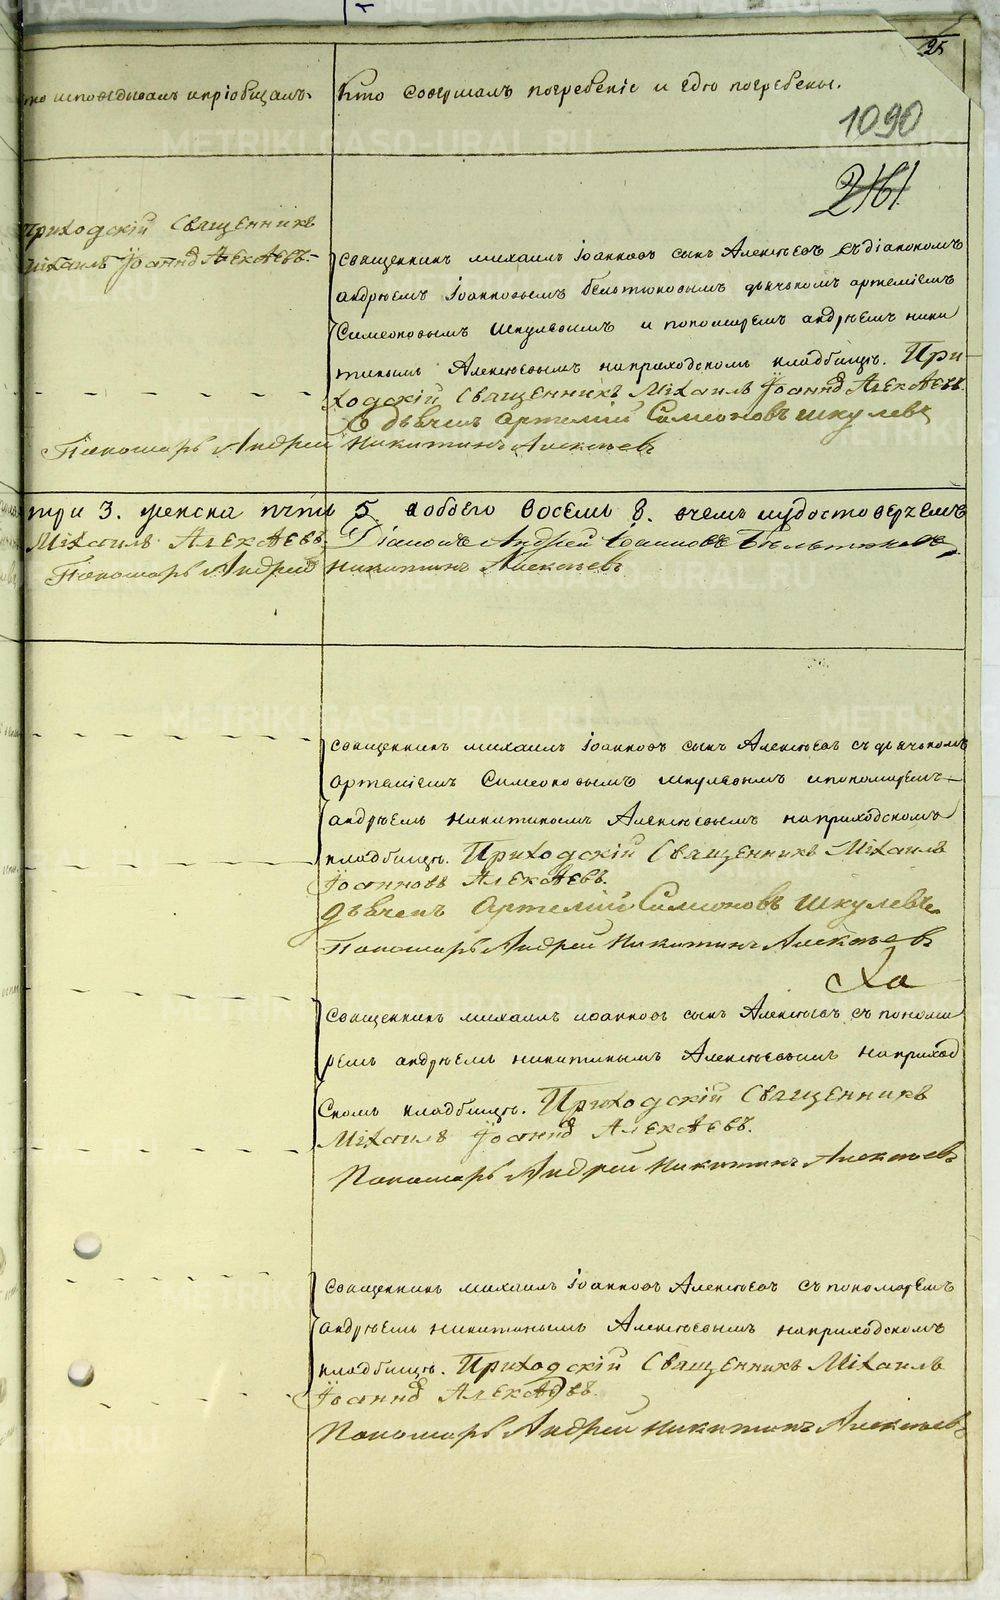 25
то исповедывалъ и пріобщалъ.
Кто совершалъ погребеніе и гдѣ погребены.
1090
2161
Приходскій Священникъ
Міхаилъ Іоанновъ Алексѣевъ.
Священникъ михаилъ Іоанновъ сынъ Алексѣевъ съ діакономъ
андрѣемъ Іоанновымъ бельтюковымъ дьячкомъ артеміемъ
Симеоновымъ шкулевымъ и пономаремъ андрѣемъ ники
тинымъ Алексѣевымъ на приходскомъ кладбищѣ. При-
ходскій Священникъ Міхаилъ Іоанновъ Алексѣевъ.
дьячекъ Артемій Симеоновъ шкулевъ
Пономарь Андрей Никитинъ Алексѣевъ
три 3. женска пять 5 а обоего восемь 8. в чемъ и удостоверяемъ
Міхаилъ Алексѣевъ. Діаконъ Андрей Іоанновъ Бельтюковъ,
Пономарь Андрей Никитинъ Алексѣевъ
Священникъ михаилъ Іоанновъ сынъ Алексѣевъ съ дьячкомъ
артеміемъ Симеоновымъ шкулевымъ и пономаремъ
андрѣемъ никитинымъ Алексѣевымъ на приходскомъ
кладбищѣ. Приходскій Священникъ Міхаилъ
Іоанновъ Алексѣевъ.
дьячекъ Артемій Симеоновъ Шкулевъ
Пономарь Андрей Никитинъ Алексѣевъ
Священникъ михаилъ иоанновъ сынъ Алексѣевъ съ понома
ремъ андрѣемъ никитинымъ Алексѣевымъ на приход
скомъ кладбищѣ. Приходскій Священникъ
Міхаилъ Іоанновъ Алексѣевъ.
Пономарь Андрей Никитинъ Алексѣевъ
Священникъ михаилъ Іоанновъ Алексѣевъ съ пономаремъ
андрѣемъ никитинымъ Алексѣевымъ на приходскомъ
кладбищѣ. Приходскій Священникъ Міхаилъ
Іоанновъ Алексѣевъ.
Пономарь Андрей Никитинъ Алексѣевъ
METRIKI.GASO-URAL.RU